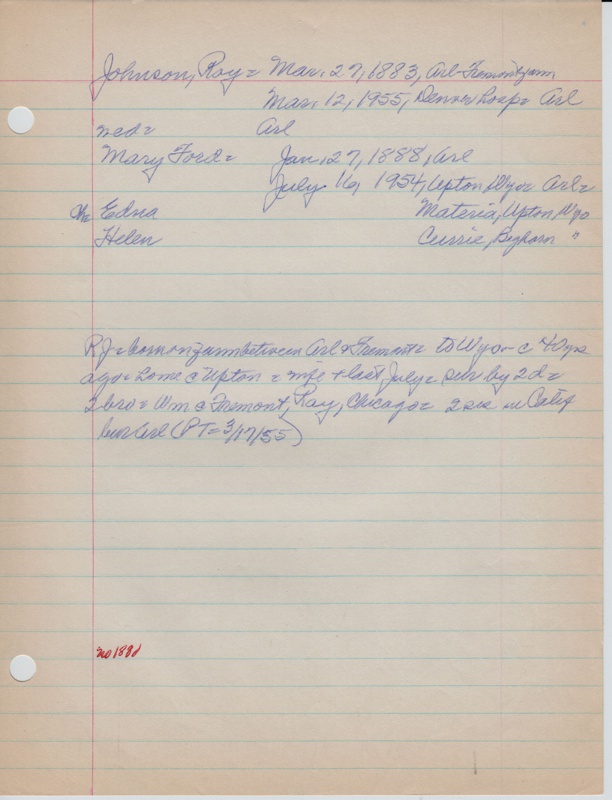 Johnson, Roy = Mar. 27, 1883, Arl-Fremont farm
Mar. 12, 1955, Denver hosp = Arl
wed = Arl
Mary Ford = Jan. 27, 1888, Arl
July 16, 1954, Upton, Wyo = Arl =
Ch Edna Materia, Upton, Wyo
Helen Currie, Bighorn "
RJ = born on farm between Arl & Fremont = to Wyo - c 40 yrs
ago = home c Upton = wife + last July = sur by 2 d =
2 bro = Wm c Fremont, Ray, Chicago = 2 sis in Calif
bur Arl (PT = 3/17/55)
no 188d